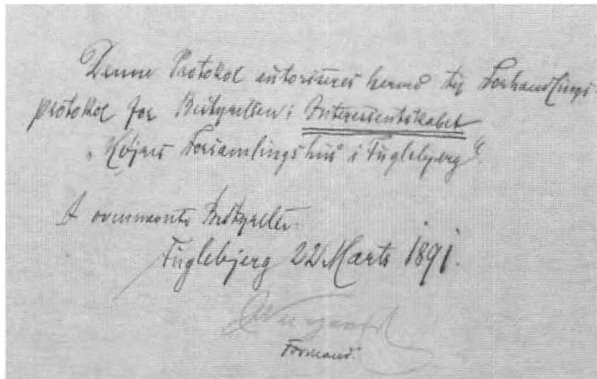 Denne Protokol autoriseres herved til Forhandlings-
protokol for Bestyrelsen i Interessentskabet
„Højres Forsamlingshus i Fuglebjerg“
I ovennævnte Bestyrelse.
Fuglebjerg 22 Marts 1891.
Formand.